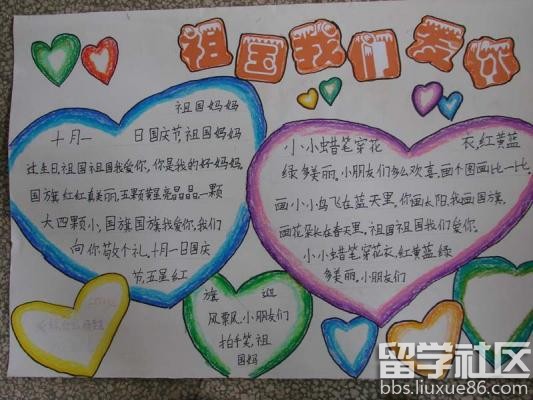 祖国我们爱你
祖国妈妈
十月一 日国庆节,祖国妈妈
过生日,祖国祖国我爱你,你是我的好妈妈,
国旗红红真美丽,五颗黄星亮晶晶,一颗
大四颗小,国旗国旗我爱你,我们
向你敬个礼。十月一日国庆
节,五星红
旗 迎
风飘飘,小朋友们
拍手笑,祖
国妈
小小蜡笔穿花 衣,红黄蓝
绿多美丽。小朋友们多么欢喜,画个图画比一比。
画小小鸟飞在蓝天里,你画太阳,我画国旗,
画花朵长在春天里。祖国祖国我们爱你。
小小蜡笔穿花衣,红黄蓝绿
多美丽。小朋友们
留学社区
bbs.liuxue86.com